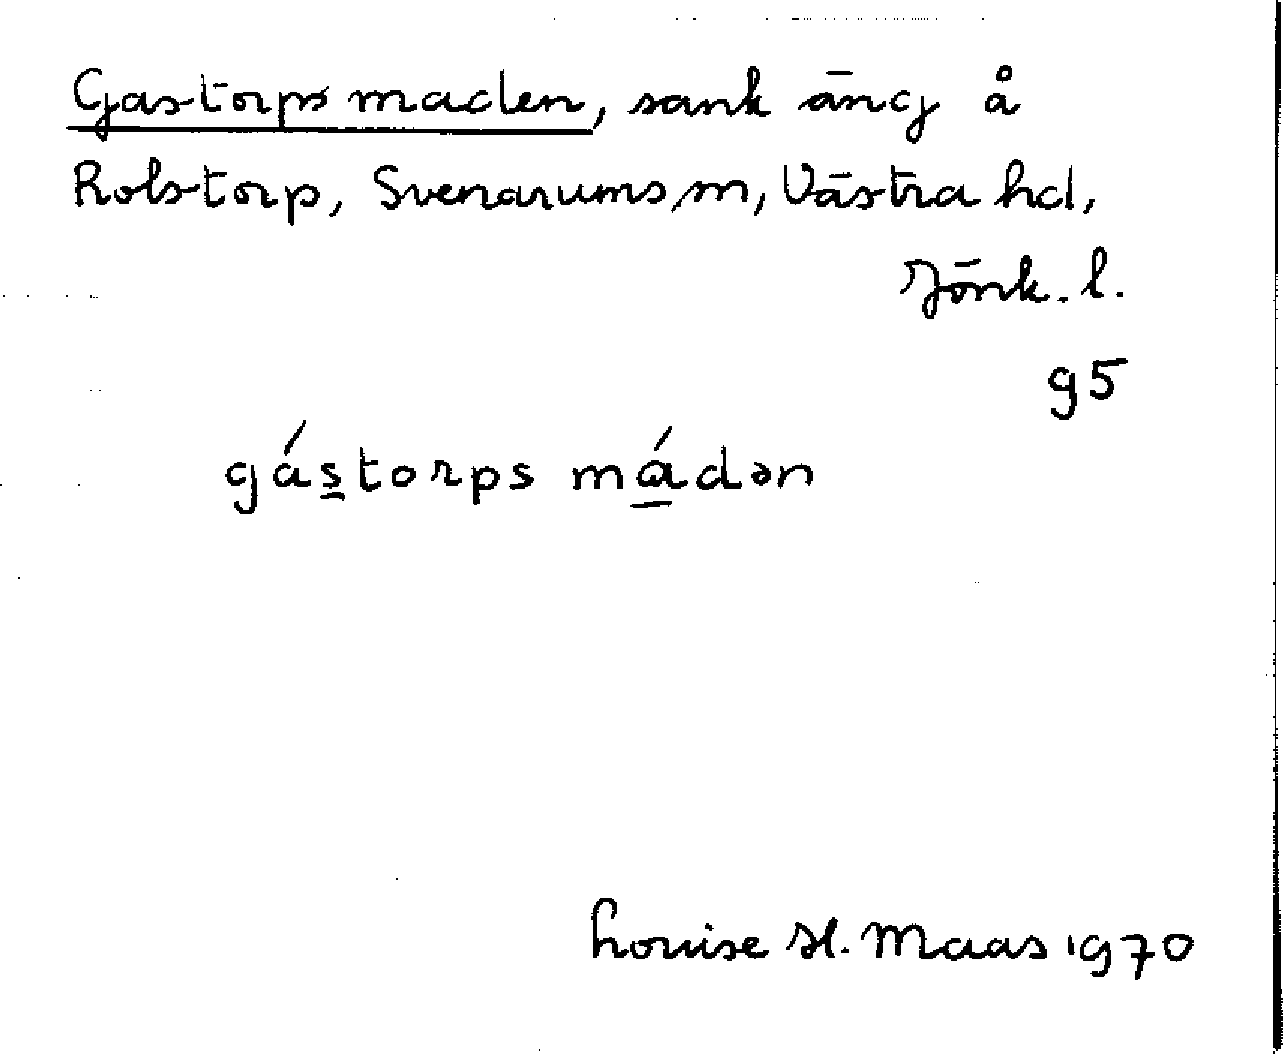 Gastorps maden, sank äng å
Rolstorp, Svenarums sn, Västra hd,
Jönk. l.
95
gás̱torps má̱dən
Louise St. Maas 1970